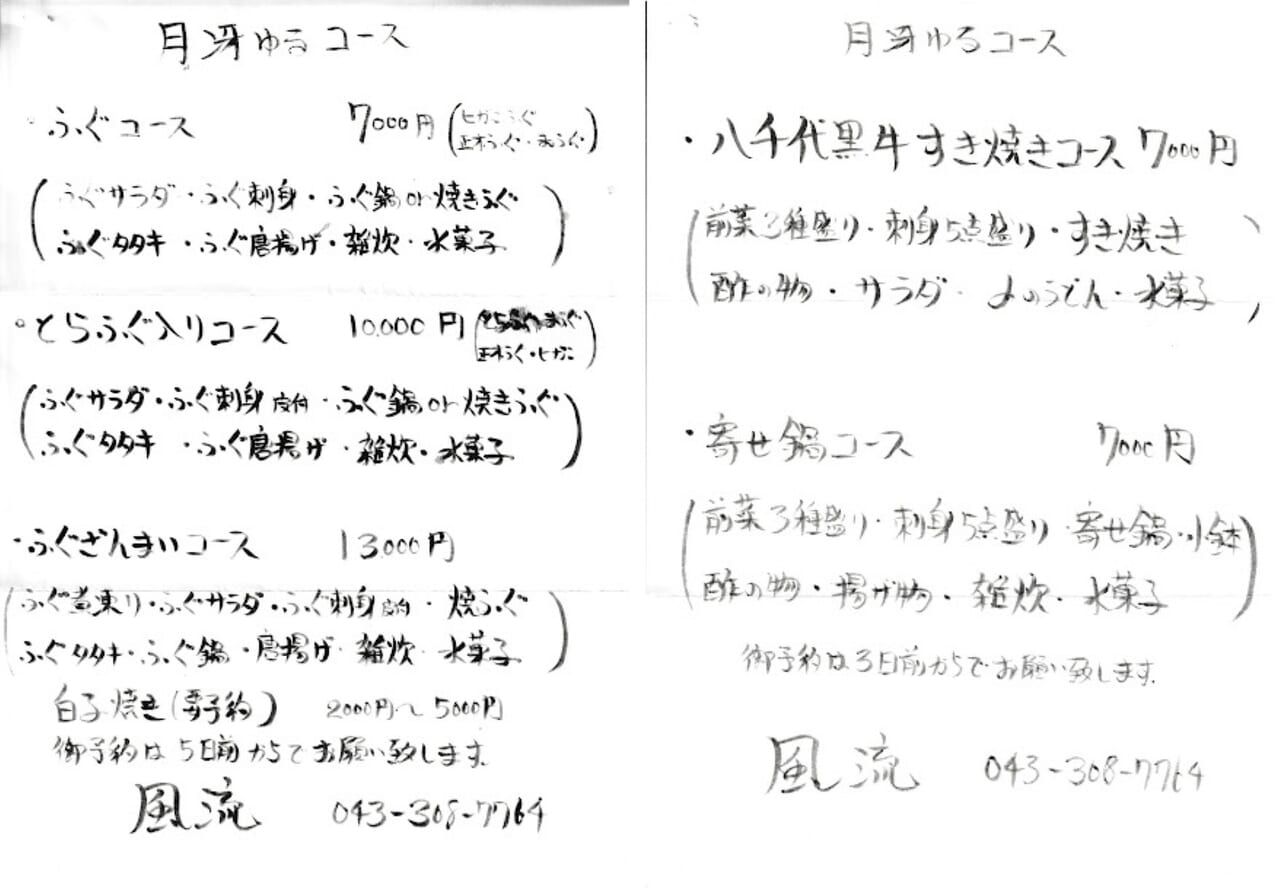 月冴ゆるコース
・ふぐコース 7000円(ヒガンふぐ
正才ふぐ・まふぐ)
(ふぐサラダ・ふぐ刺身・ふぐ鍋or焼きふぐ
ふぐタタキ・ふぐ唐揚げ・雑炊・水菓子)
・とらふぐ入りコース 10.000円(とらふぐ・まふぐ
正才ふぐ・ヒガン)
(ふぐサラダ・ふぐ刺身皮付・ふぐ鍋or焼きふぐ
ふぐタタキ・ふぐ唐揚げ・雑炊・水菓子)
・ふぐざんまいコース 13.000円
(ふぐ煮凍り・ふぐサラダ・ふぐ刺身皮付・焼ふぐ
ふぐタタキ・ふぐ鍋・唐揚げ・雑炊・水菓子)
白子焼き(要予約) 2000円〜5000円
御予約は5日前からでお願い致します。
風流 043-308-7764
月冴ゆるコース
・八千代黒牛すき焼きコース 7000円
(前菜3種盛り・刺身5点盛り・すき焼き
酢の物・サラダ・〆のうどん・水菓子)
・寄せ鍋コース 7000円
(前菜3種盛り・刺身5点盛り・寄せ鍋・小鉢
酢の物・揚げ物・雑炊・水菓子)
御予約は3日前からでお願い致します。
風流 043-308-7764